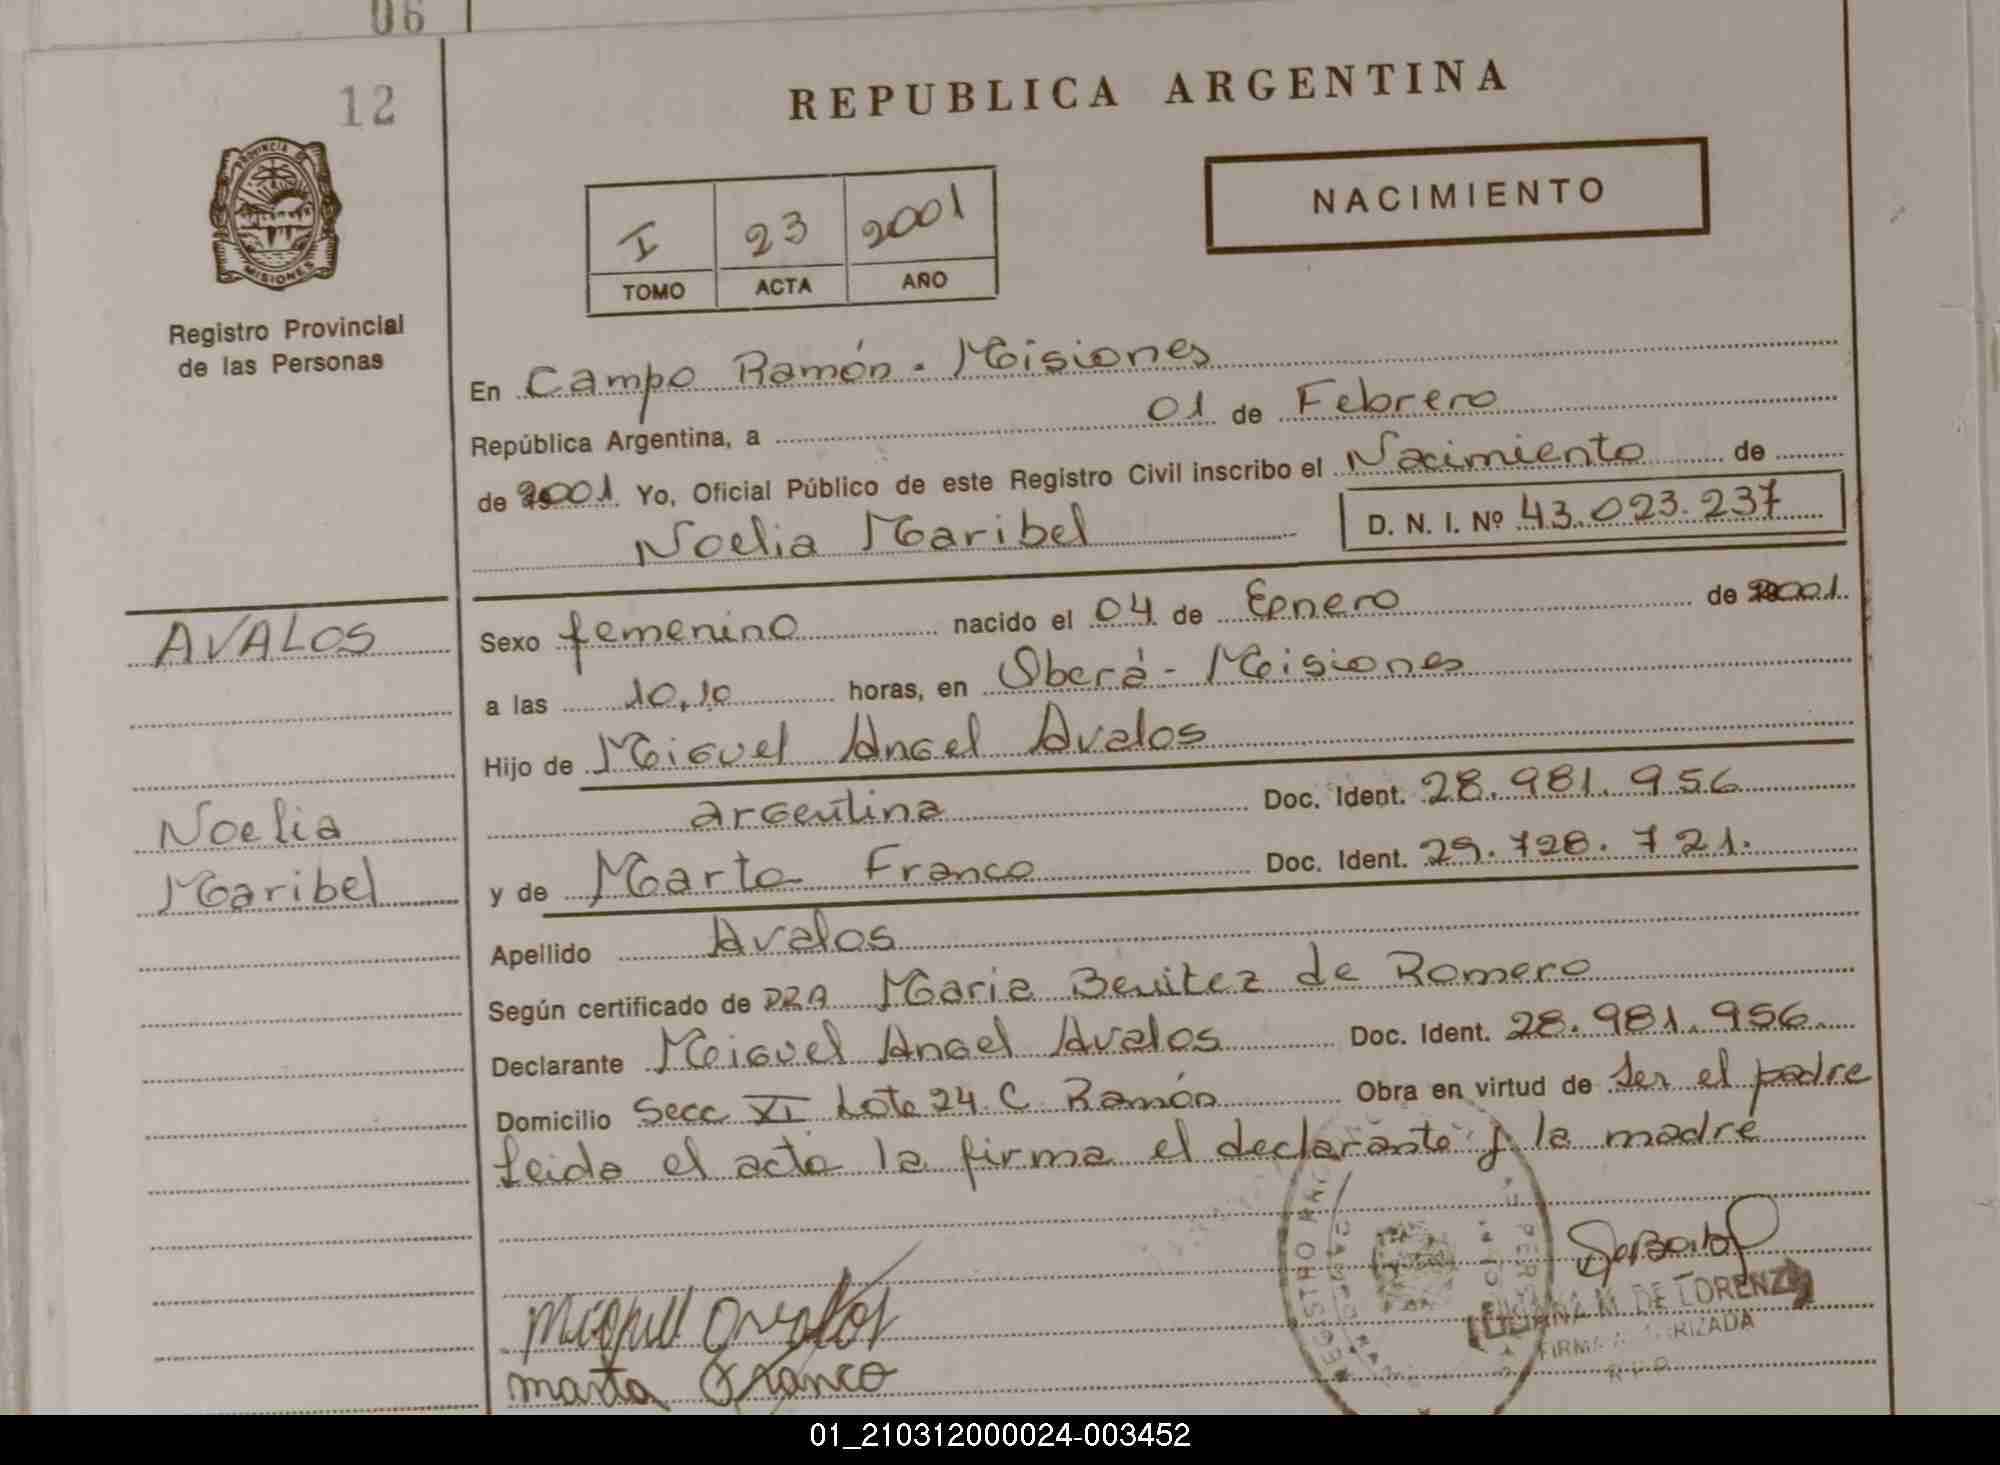 06
12
REPUBLICA ARGENTINA
PROVINCIA DE
MISIONES
Registro Provincial
de las Personas
NACIMIENTO
I 23 2001
TOMO ACTA AÑO
En Campo Ramón. Misiones
República Argentina, a 01 de Febrero
de 2001. Yo, Oficial Público de este Registro Civil inscribo el Nacimiento de
Noelia Maribel D. N. I. Nº 43.023.237
AVALOS
Noelia
Maribel
Sexo femenino nacido el 04 de Enero de 2001.
a las 10,10 horas, en Oberá - Misiones
Hijo de Miguel Angel Avalos
argentina Doc. Ident. 28.981.956
y de Marta Franco Doc. Ident. 29.728.721.
Apellido Avalos
Según certificado de DRA Maria Benitez de Romero
Declarante Miguel Angel Avalos Doc. Ident. 28.981.956
Domicilio Secc XI Lote 24 C. Ramón Obra en virtud de ser el padre
Leida el acta la firma el declarante y la madre
Miguel Avalos
Marta Franco
M. DE LORENZO
FIRMA AUTORIZADA
01_210312000024-003452